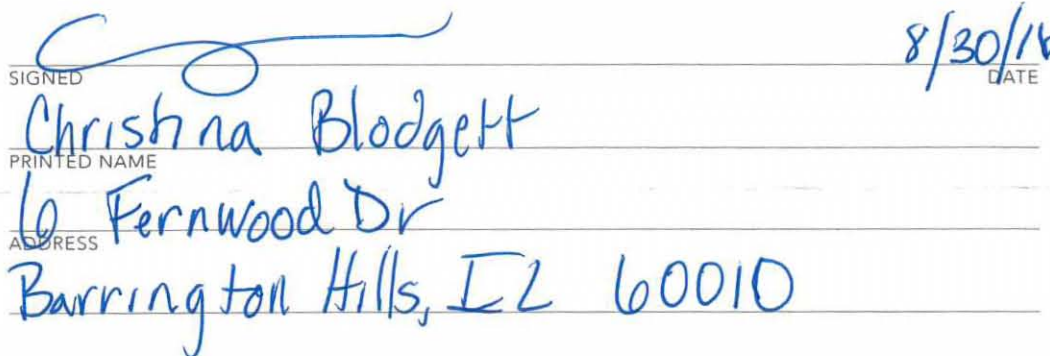 8/30/18
SIGNED DATE
Christina Blodgett
PRINTED NAME
6 Fernwood Dr
ADDRESS
Barrington Hills, IL 60010